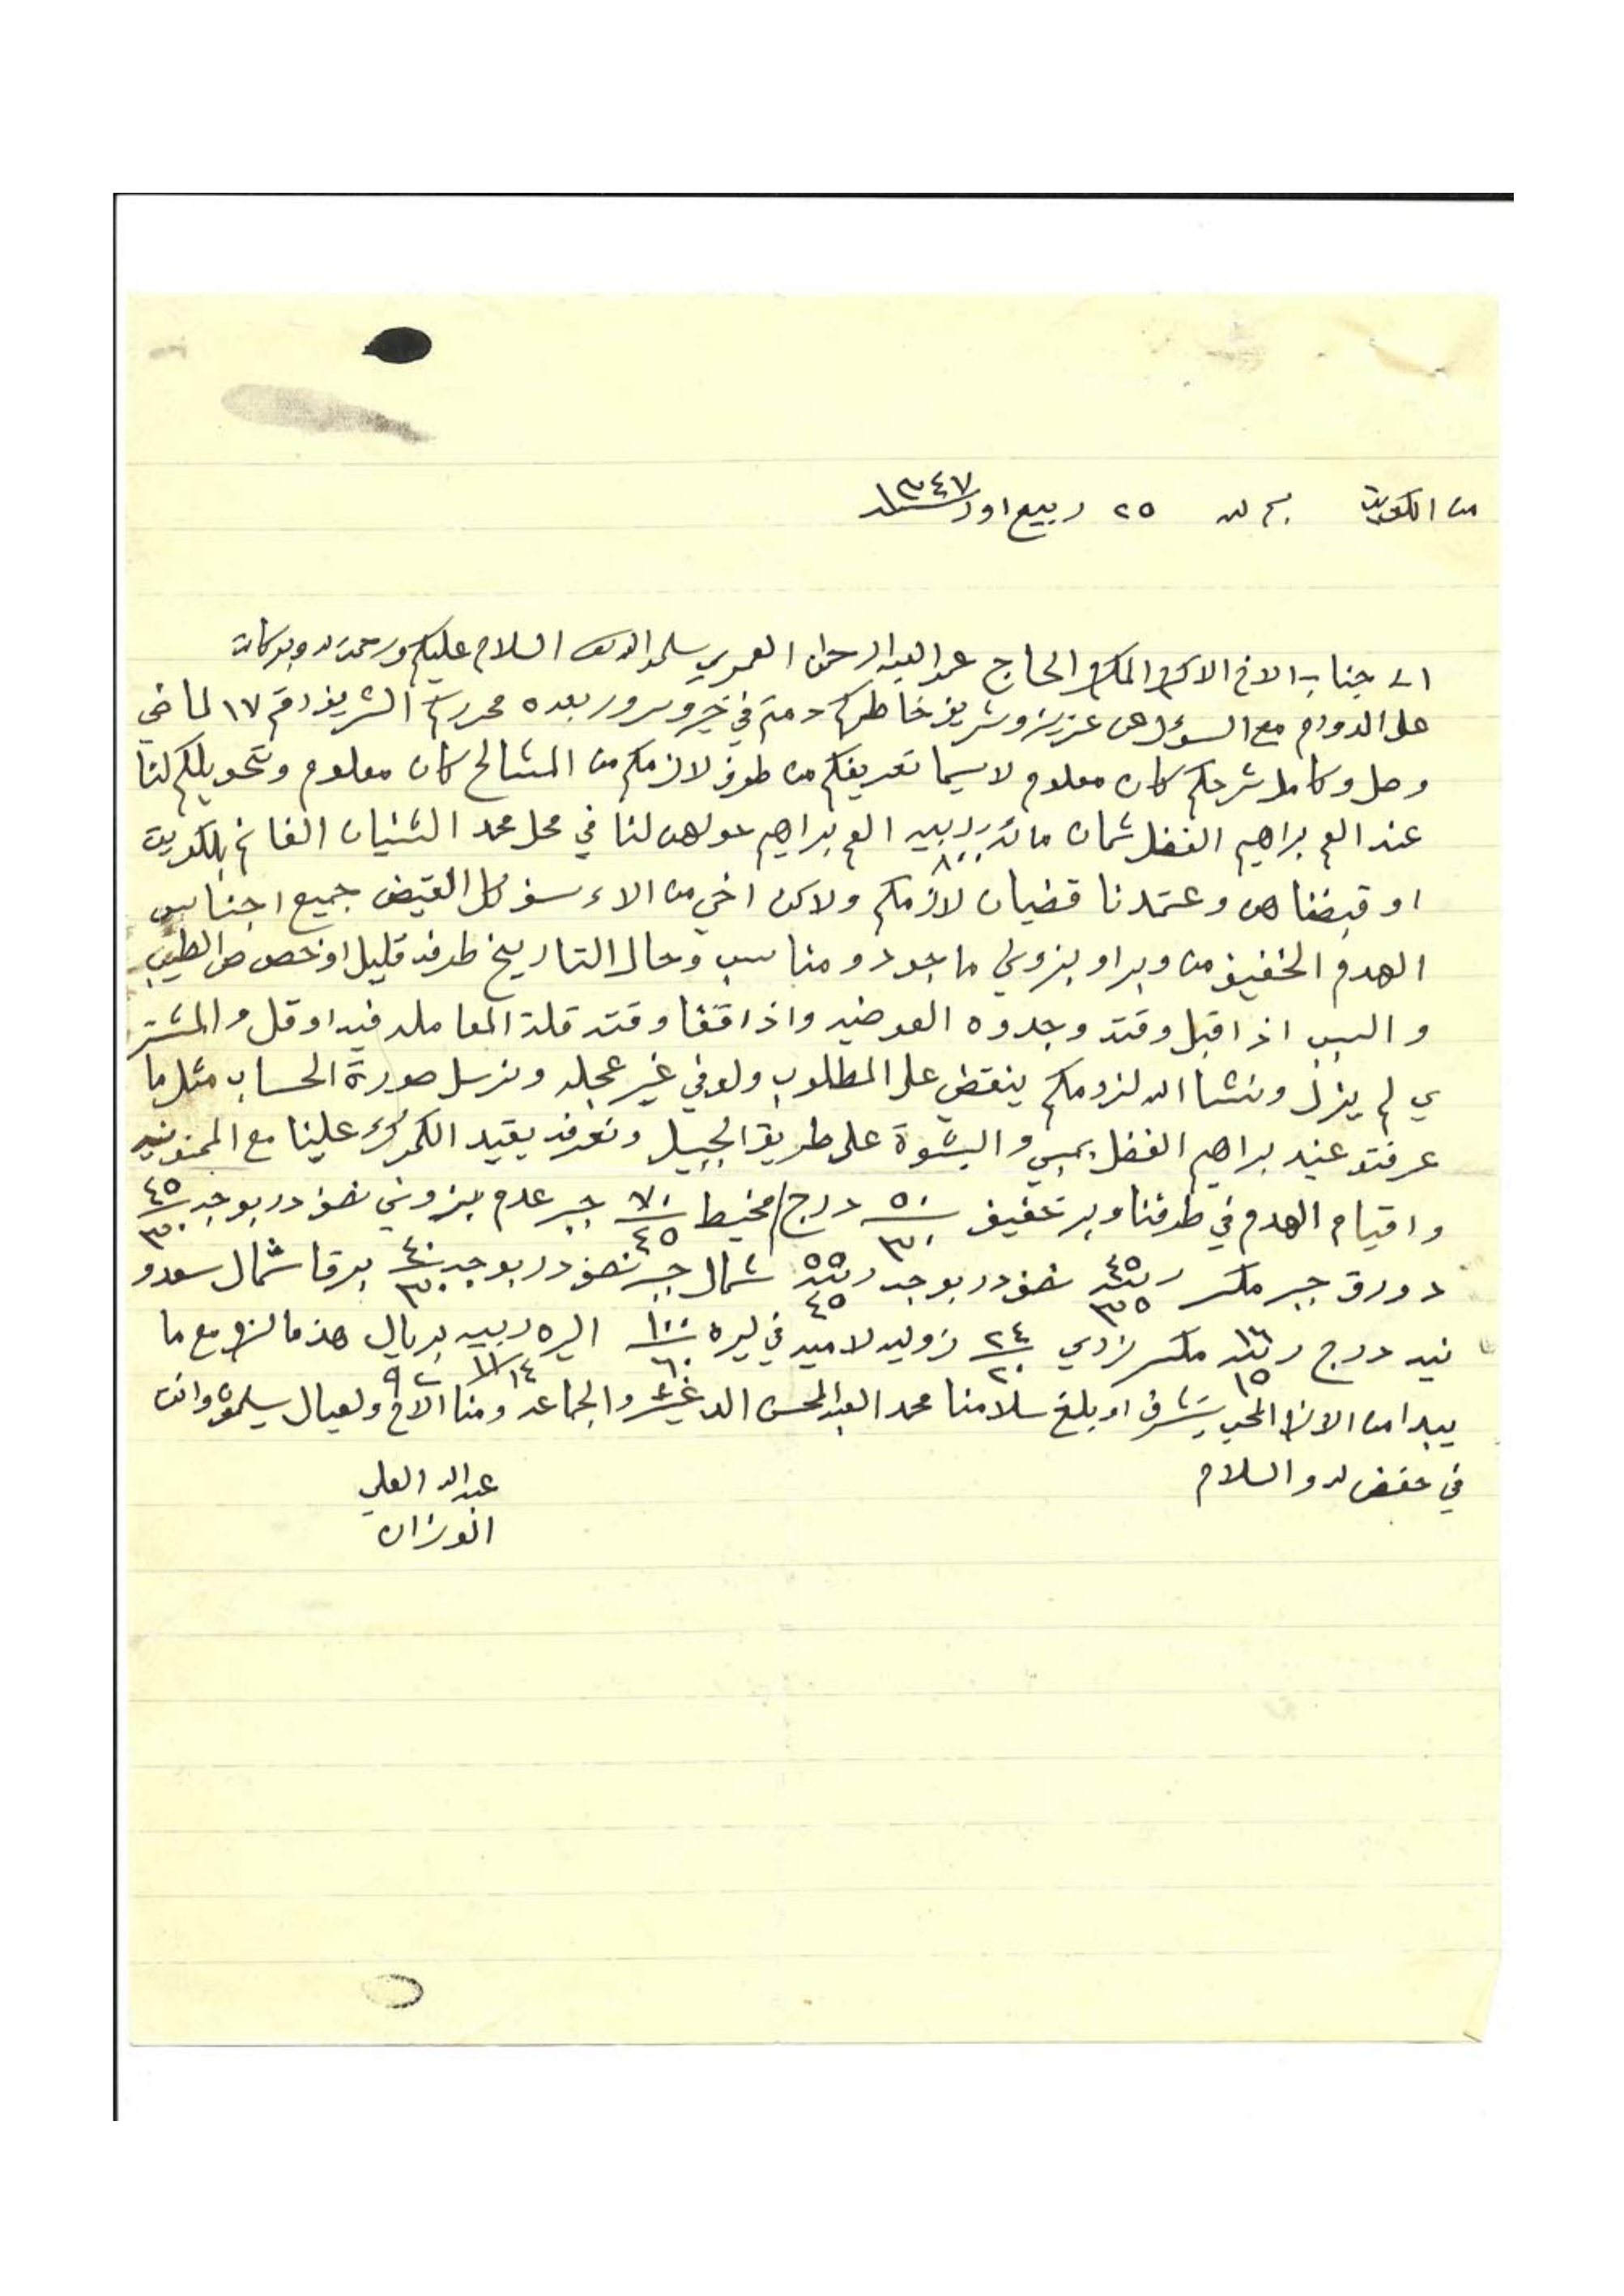 من الكويت بسم الله ٢٥ ربيع اول سنة ١٣٤٧
الى جناب الاخ الاكرم المكرم الحاج حمد العبدالرحمن العمري سلمه الله تعالى السلام عليكم ورحمة الله وبركاته
على الدوام مع السؤل عن عزيز وشريف خاطركم دمتم في خير وسرور بعده محرركم الشريف رقم ١٧ لماضي
وصل وكامل شرحكم كان معلوم لاسيما تعريفكم من طرف لازمكم من المشالح كان معلوم وتحويلكم لنا
عند العم براهيم الفضل ثمان مائة ربيه ٨٠٠ العم براهيم حولهن لنا في محل محمد الثنيان الغانم بالكويت
او قبضناهن وعتمدنا قضيان لازمكم ولاكن اخي من الاء سف كل القيض جميع اجناس
الهدم الخفيف من وبر او بزوني ماجود ومناسب وحال التاريخ طرفه قليل اوخصوص الطيب
والسبب اذا قبل وقته وجدوه العوضيه واذا قفا وقته قلة المعامله فيه او قل والمشتر
ي لم يزل ونشا الله لزومكم ينقضي على المطلوب ولو في غير عجله ونرسل صورة الحساب مثل ما
عرفتو عنيد براهيم الفضل بمبي والبشوة على طريق الجبيل ونعرفه يقيد الكمرك علينا مع الممنونيه
واقيام الهدم في طرفنا وبر خفيف ٥٠ ٣٠ درج مخيط ٧٠ ٤٥ جبر عدم بزوني نصف دربوجه ٤٥ ٣٠
دورق جبر مكسر ربته ٤٥ ٣٥ نصف دربوجه ربته ٥٥ ٤٥ شمال جبر نصف دربوجه ٤٠ ٣٠ برقا شمال سعدو
نيه درج ربته ١٦ ١٥ مكسر نردي ٢٤ ٢٠ زوليه لاميه في ليره ١٠٠ ٦٠ اليره ربيه ١١/١٤ بريال ٩٢ هذا مالزم مع ما
يبدا من الازم المحب يتشرف او بلغ سلامنا محمد العبدالمحسن الدغيثر والجماعه ومنا الاخ ولعيال يسلمون وانت
في حفض الله والسلام
عبدالله العلي
الوزان